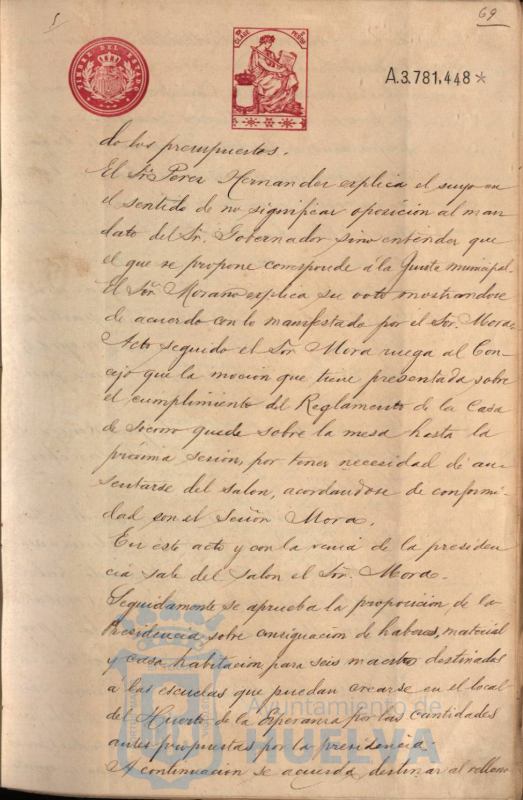 5
69
TIMBRE DEL ESTADO
CLASE
PESETAS
A.3.781,448*
do los presupuestos.
El Sr. Perez Hernandez esplica el suyo en
el sentido de no significar oposicion al man
dato del Sr. Gobernador sino entender que
el que se propone corresponde á la Junta municipal.
El Sor. Moraño esplica su voto mostrandose
de acuerdo con lo manifestado por el Sor. Mora.
Acto seguido el Sor. Mora ruega al Con-
cejo que la mocion que tiene presentada sobre
el cumplimiento del Reglamento de la Casa
de Socorro quede sobre la mesa hasta la
próxima sesion, por tener necesidad de au
sentarse del salon, acordandose de conformi
dad con el Señor Mora.
En este acto y con la venia de la presiden
cia sale del salon el Sor. Mora.
Seguidamente se aprueba la proposicion de la
Presidencia sobre consignacion de haberes, material
y casa habitacion para seis maestros destinados
a las escuelas que puedan crearse en el local
del Huerto de la Esperanza por las cantidades
antes propuestas por la presidencia.
A continuacion se acuerda destinar al relleno
Ayuntamiento de
HUELVA